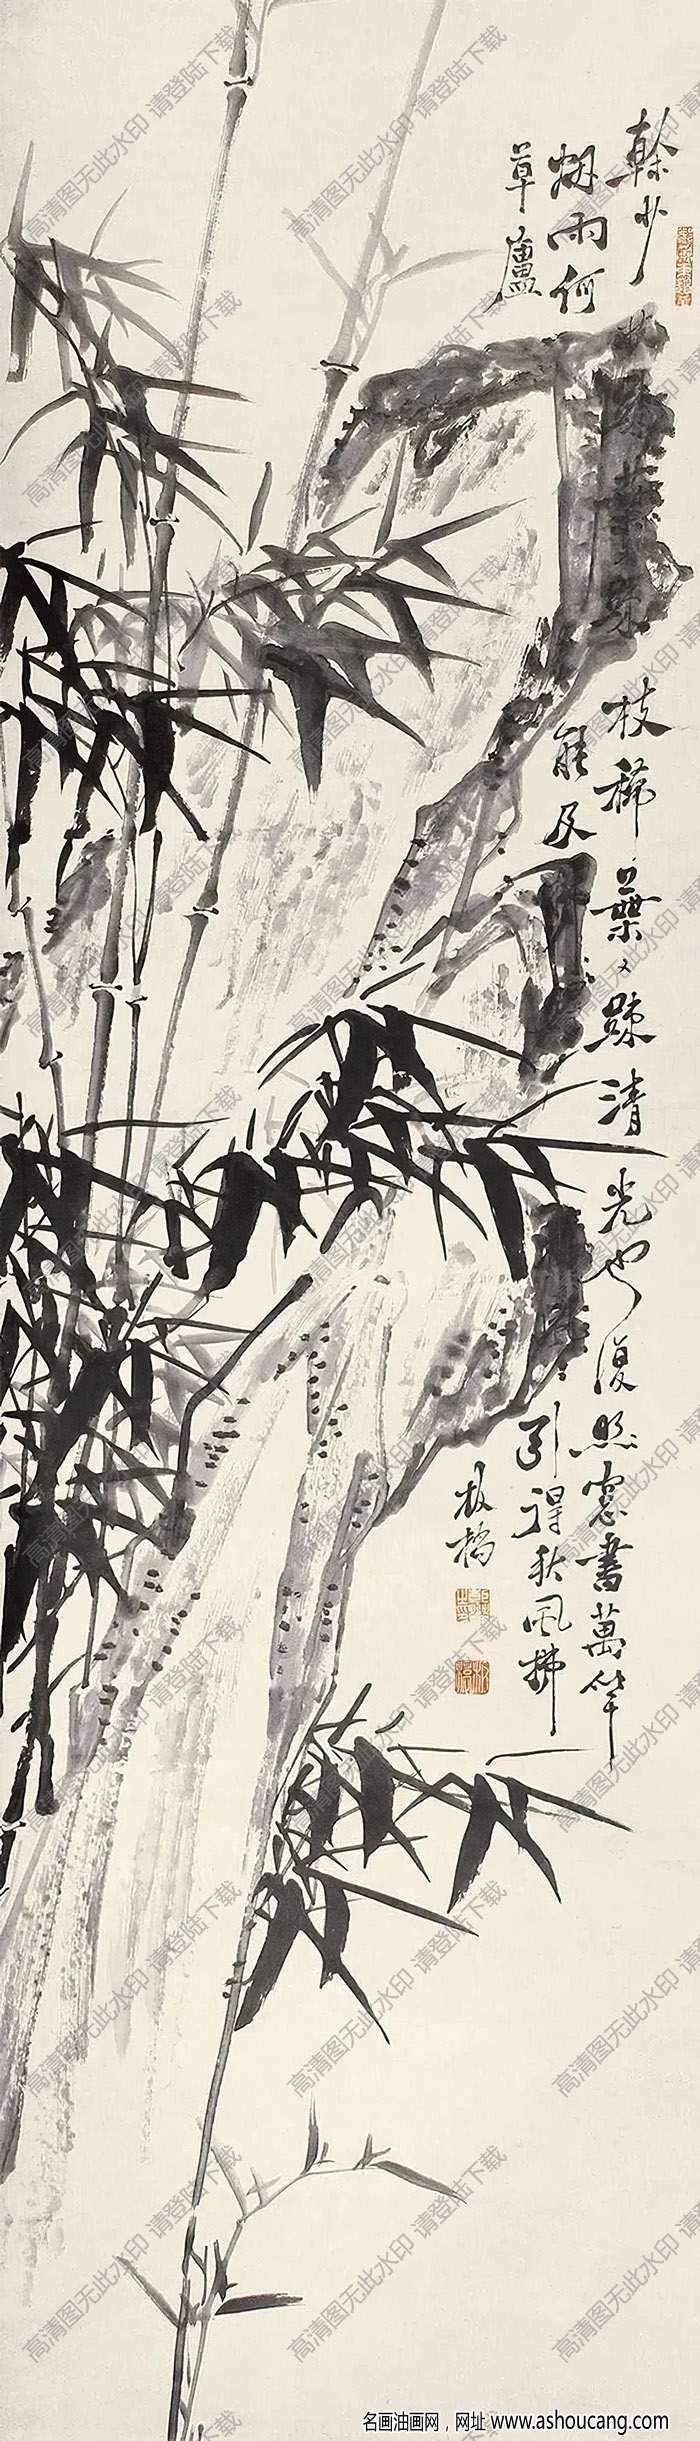 幹少枝稀葉又疎清光也復照窓書萬竿
烟雨何能及引得秋風拂
草廬
板橋
高清图无此水印 请登陆下载
名画油画网，网址 www.ashoucang.com